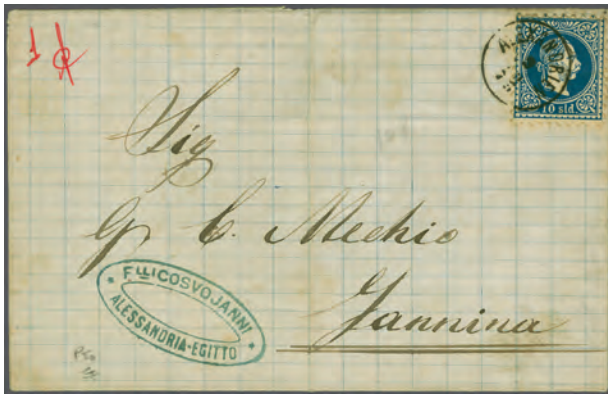 Sig
G. C. Mechio
Jannina
FLLI COSVOJANNI
ALESSANDRIA-EGITTO
10 SLD